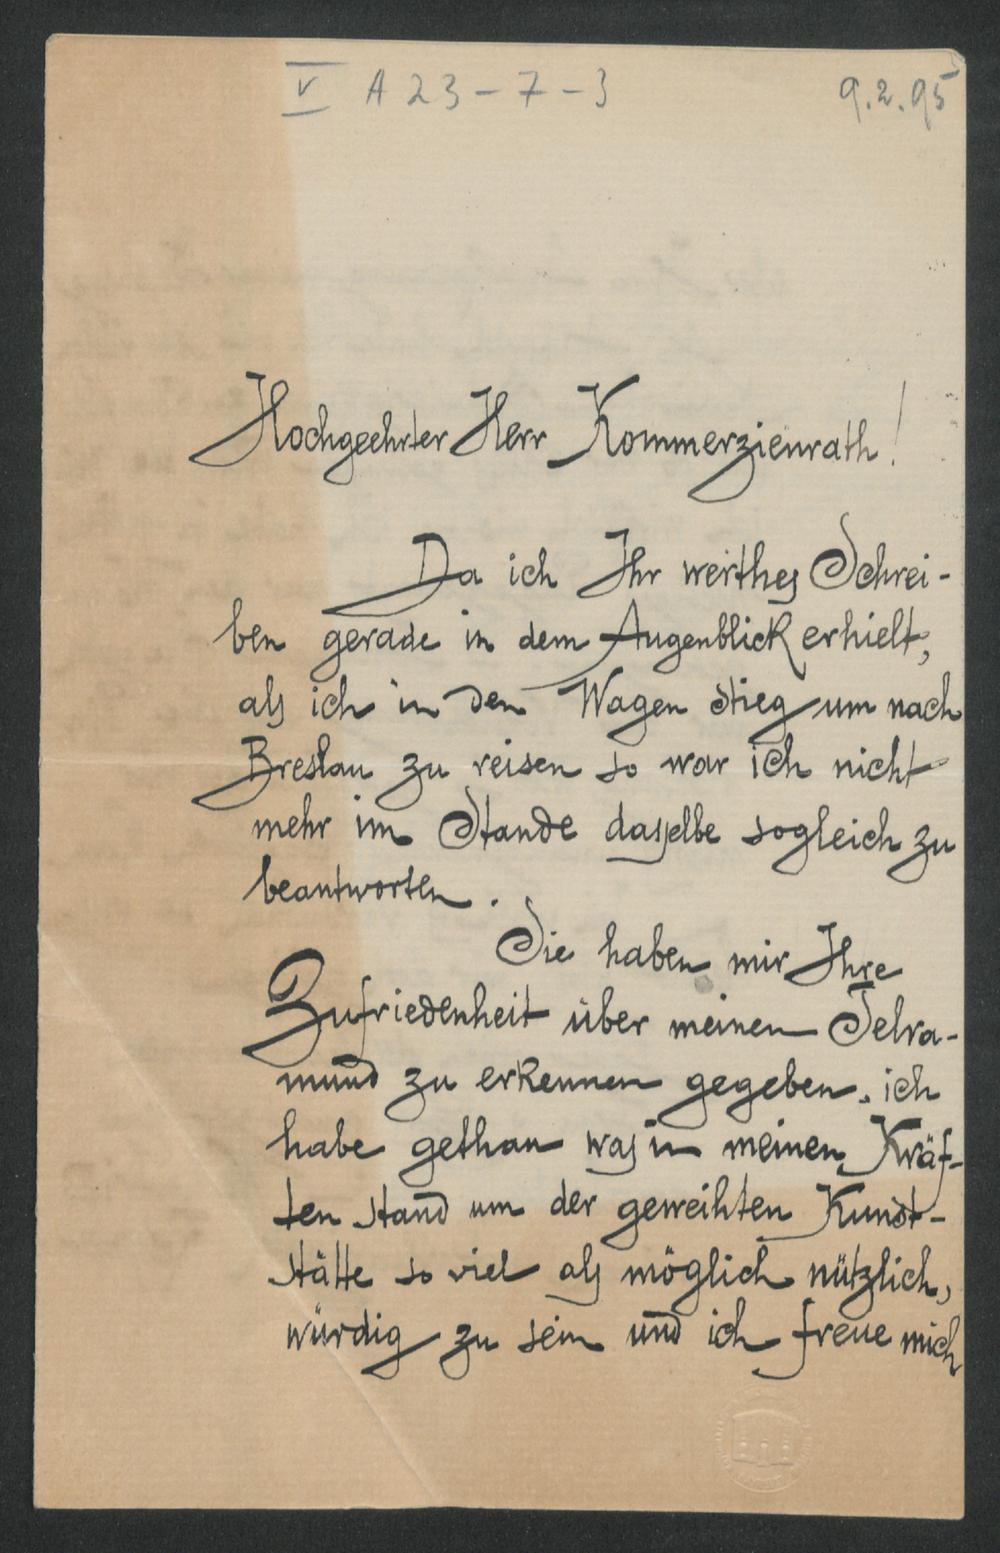 V A 23 - 7 - 3 9.2.95
Hochgeehrter Herr Kommerzienrath!
Da ich Ihr werthes Schrei-
ben gerade in dem Augenblick erhielt,
als ich in den Wagen stieg um nach
Breslau zu reisen so war ich nicht
mehr im Stande dasselbe sogleich zu
beantworten.
Sie haben mir Ihre
Zufriedenheit über meinen Telra-
mund zu erkennen gegeben. ich
habe gethan was in meinen Kräf-
ten stand um der geweihten Kunst-
stätte so viel als möglich nützlich,
würdig zu sein und ich freue mich